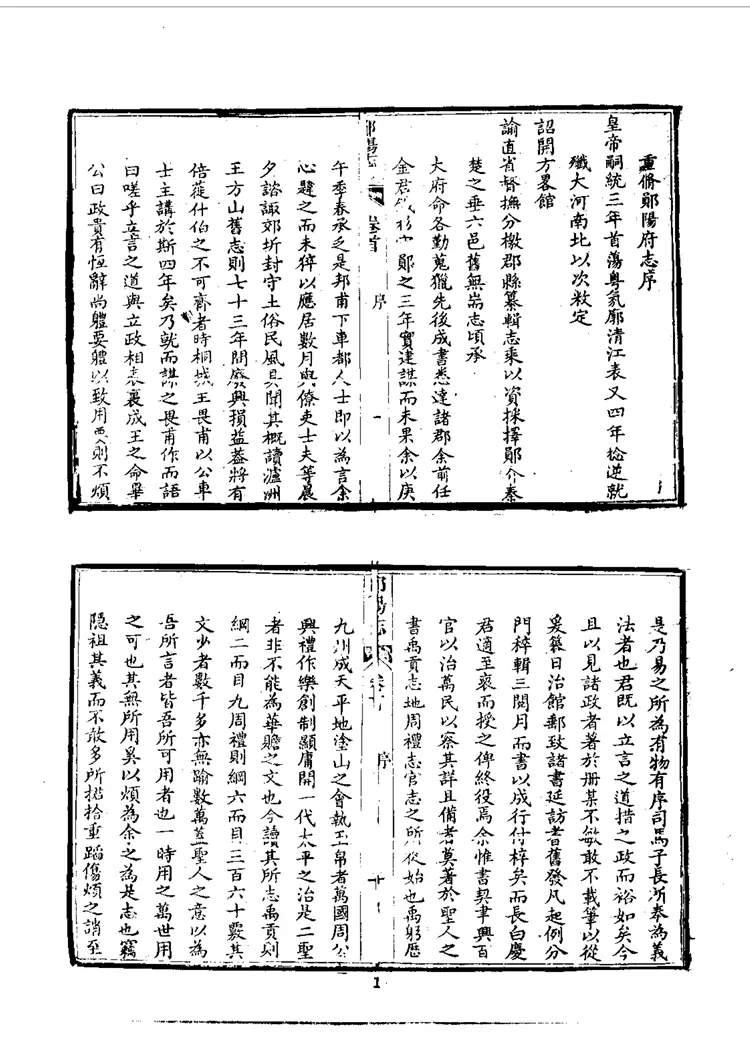 重脩鄖陽府志序
皇帝嗣統三年首蕩粵氛廓清江表又四年捻逆就
殲大河南北以次敉定
詔開方畧館
諭直省督撫分檄郡縣纂輯志乘以資採擇鄖介秦
楚之垂六邑舊無耑志頃承
大府命各勤蒐獵先後成書悉達諸郡余前任
金君 鄖之三年實建謀而未果余以庚
鄖陽志
卷首
序
一
午季春承乏是邦甫下車都人士即以為言余
心韙之而未猝以應居數月與僚吏士夫等晨
夕諮諏郊圻封守土俗民風具聞其概讀瀘洲
王方山舊志則七十三年間廢興損益蓋將有
倍蓰什伯之不可齊者時桐城王畏甫以公車
士主講於斯四年矣乃就而謀之畏甫作而語
曰嗟乎立言之道與立政相表裏成王之命畢
公曰政貴有恒辭尚體要體以致用要則不煩
是乃易之所為有物有序司馬子長所奉為義
法者也君既以立言之道措之政而裕如矣今
且以見諸政者著於册某不敏敢不載筆以從
爰簽日治館郵致諸書延訪耆舊發凡起例分
門稡輯三閱月而書以成行付梓矣而長白慶
君適至裒而授之俾終役焉余惟書契聿興百
官以治萬民以察其詳且備者莫著於聖人之
書禹貢志地周禮志官志之所從始也禹躬歷
鄖陽志
序
九州成天平地塗山之會執玉帛者萬國周公
興禮作樂創制顯庸開一代太平之治是二聖
者非不能為華贍之文也今讀其所志禹貢則
綱二而目九周禮則綱六而目三百六十覈其
文少者數千多亦無踰數萬蓋聖人之意以為
吾所言者皆吾所可用者也一時用之萬世用
之可也其無所用奚以煩為余之為是志也竊
隱祖其義而不敢多所掎拾重蹈傷煩之誚至
1